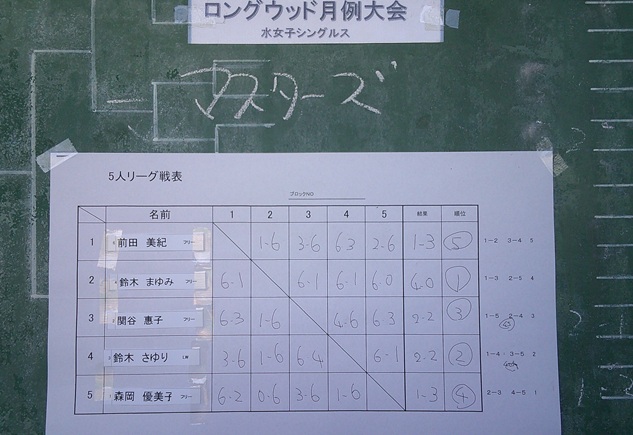 ロングウッド月例大会
水女子シングルス
マスターズ
5人リーグ戦表
ブロックNO
名前 1 2 3 4 5 結果 順位
1 前田 美紀 フリー 1-6 3-6 6-3 2-6 1-3 5 1-2 3-4 5
2 鈴木 まゆみ フリー 6-1 6-1 6-1 6-0 4-0 1 1-3 2-5 4
3 関谷 惠子 フリー 6-3 1-6 4-6 6-3 2-2 3 1-5 2-4 3
4 鈴木 さゆり 3-6 1-6 6-4 6-1 2-2 2 1-4 3-5 2
5 森岡 優美子 フリー 6-2 0-6 3-6 1-6 1-3 4 2-3 4-5 1